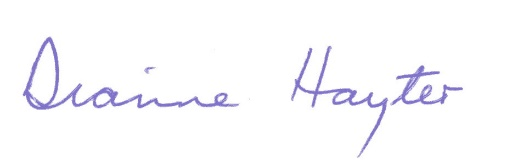 Dianne Hayter